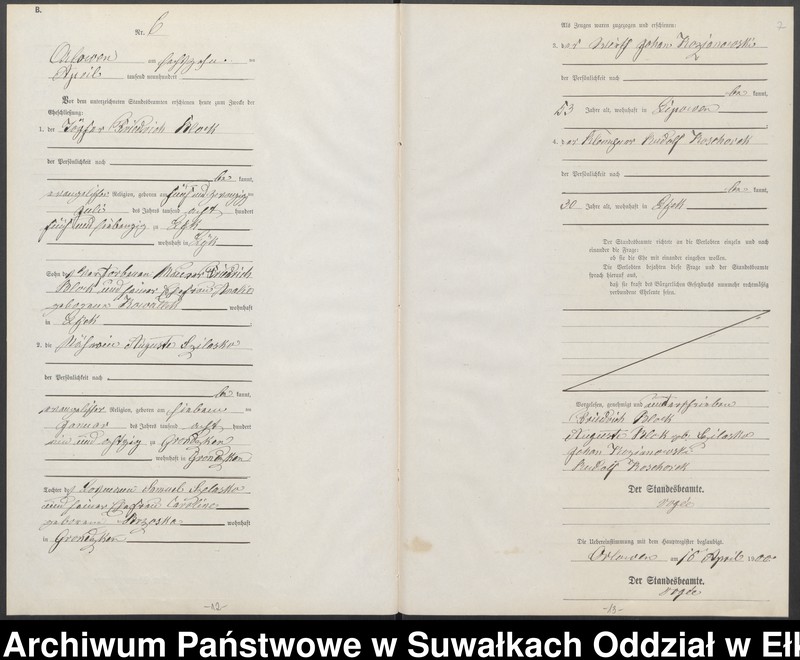 B.
Nr. 6
Orlowen am sechszehnten
April tausend neunhundert
Vor dem unterzeichneten Standesbeamten erschienen heute zum Zwecke der
Eheschließung:
1. der Töpfer Friedrich Block
der Persönlichkeit nach
be kannt,
evangelischer Religion, geboren am fünf und zwanzigsten
Juli des Jahres tausend acht hundert
fünf und siebenzig zu Lyck
wohnhaft in Lyck
Sohn des verstorbenen Maurer Friedrich
Block und seiner Ehefrau
geborene wohnhaft
in Lyck
2. die Auguste Szilasko
der Persönlichkeit nach
be kannt,
evangelischer Religion, geboren am siebenten
Januar des Jahres tausend acht hundert
ein und achtzig zu Grondzken
wohnhaft in Grondzken
Tochter des Samuel Szilasko
und seiner Ehefrau Caroline
geborene Brzoska wohnhaft
in Grondzken
-12-
2
Als Zeugen waren zugezogen und erschienen:
3. der Wirth Johan Rozianowski
der Persönlichkeit nach
be kannt,
53 Jahre alt, wohnhaft in Lipowen
4. der Klempner Rudolf Roschorek
der Persönlichkeit nach
be kannt,
30 Jahre alt, wohnhaft in Lyck
Der Standesbeamte richtete an die Verlobten einzeln und nach
einander die Frage:
ob sie die Ehe mit einander eingehen wollen.
Die Verlobten bejahten diese Frage und der Standesbeamte
sprach hierauf aus,
daß sie kraft des Bürgerlichen Gesetzbuchs nunmehr rechtmäßig
verbundene Eheleute seien.
Vorgelesen, genehmigt und unterschrieben
Friedrich Block
Auguste Blok geb. Szilasko
Johan Rozianowski
Rudolf Roschorek
Der Standesbeamte.
Die Uebereinstimmung mit dem Hauptregister beglaubigt.
Orlowen am 16 April 1900
Der Standesbeamte.
-13-
Archiwum Państwowe w Suwałkach Oddział w Ełk